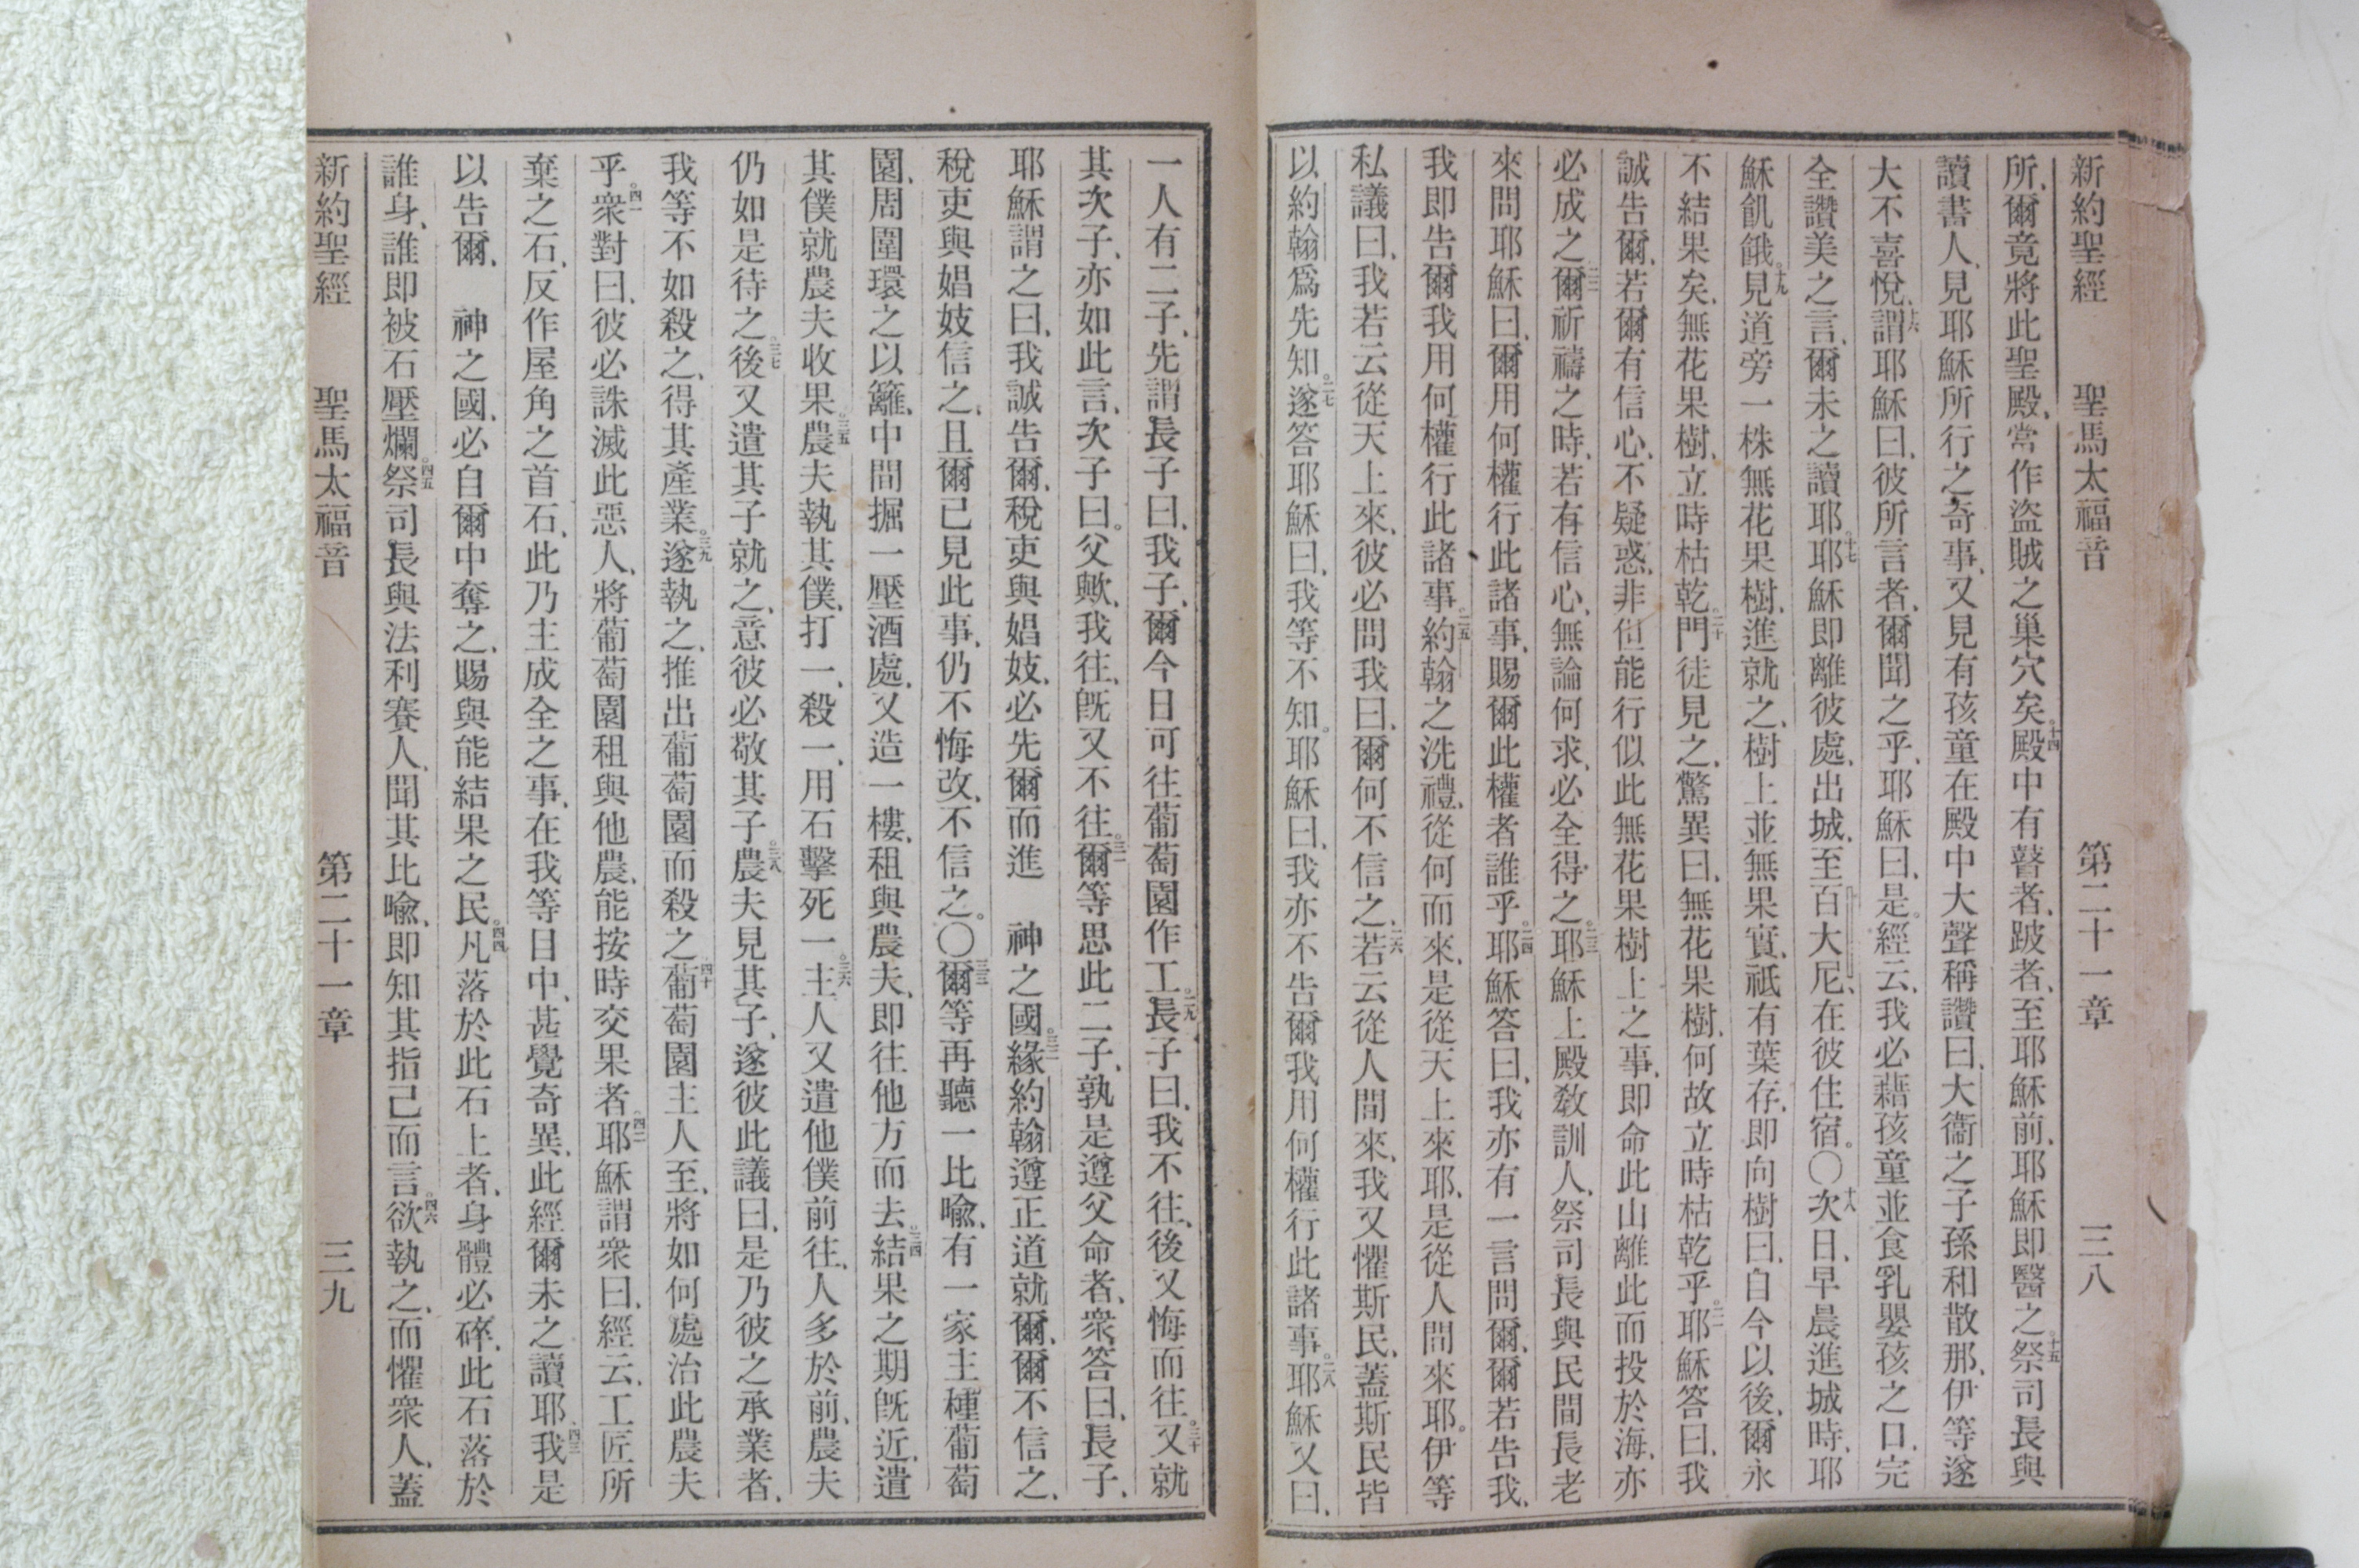 新約聖經 聖馬太福音 第二十一章 三八
所、爾竟將此聖殿、當作盜賊之巢穴矣。十四殿中有瞽者、跛者、至耶穌前、耶穌即醫之。十五祭司長與
讀書人、見耶穌所行之奇事、又見有孩童在殿中大聲稱讚曰、大衞之子孫和散那、伊等遂
大不喜悅、十六謂耶穌曰、彼所言者、爾聞之乎、耶穌曰、是。經云、我必藉孩童並食乳嬰孩之口、完
全讚美之言、爾未之讀耶。十七耶穌即離彼處、出城、至百大尼、在彼住宿。〇十八次日、早晨進城時、耶
穌飢餓。十九見道旁一株無花果樹、進就之、樹上並無果實、祇有葉存、即向樹曰、自今以後、爾永
不結果矣、無花果樹、立時枯乾。二十門徒見之、驚異曰、無花果樹、何故立時枯乾乎。二一耶穌答曰、我
誠告爾、若爾有信心、不疑惑、非但能行似此無花果樹上之事、即命此山離此而投於海、亦
必成之。二二爾祈禱之時、若有信心、無論何求、必全得之。二三耶穌上殿教訓人、祭司長與民間長老
來問耶穌曰、爾用何權行此諸事、賜爾此權者誰乎。二四耶穌答曰、我亦有一言問爾、爾若告我、
我即告爾我用何權行此諸事。二五約翰之洗禮、從何而來、是從天上來耶、是從人間來耶。伊等
私議曰、我若云從天上來、彼必問我曰、爾何不信之、二六若云從人間來、我又懼斯民、蓋斯民皆
以約翰爲先知。二七遂答耶穌曰、我等不知。耶穌曰、我亦不告爾我用何權行此諸事。二八耶穌又曰、
一人有二子、先謂長子曰、我子、爾今日可往葡萄園作工。二九長子曰、我不往、後又悔而往。三十又就
其次子、亦如此言、次子曰。父歟、我往、旣又不往。三一爾等思此二子、孰是遵父命者、衆答曰、長子、
耶穌謂之曰、我誠告爾、稅吏與娼妓、必先爾而進 神之國。三二緣約翰遵正道就爾、爾不信之、
稅吏與娼妓信之、且爾已見此事、仍不悔改、不信之。〇三三爾等再聽一比喻、有一家主種葡萄
園、周圍環之以籬、中間掘一壓酒處、又造一樓、租與農夫、即往他方而去。三四結果之期旣近、遣
其僕就農夫收果。三五農夫執其僕、打一、殺一、用石擊死一。三六主人又遣他僕前往、人多於前、農夫
仍如是待之。三七後又遣其子就之、意彼必敬其子。三八農夫見其子、遂彼此議曰、是乃彼之承業者、
我等不如殺之、得其產業。三九遂執之、推出葡萄園而殺之。四十葡萄園主人至、將如何處治此農夫
乎。四一衆對曰、彼必誅滅此惡人、將葡萄園租與他農、能按時交果者。四二耶穌謂衆曰、經云、工匠所
棄之石、反作屋角之首石、此乃主成全之事、在我等目中、甚覺奇異、此經爾未之讀耶。四三我是
以告爾、 神之國、必自爾中奪之、賜與能結果之民。四四凡落於此石上者、身體必碎、此石落於
誰身、誰即被石壓爛。四五祭司長與法利賽人、聞其比喻、即知其指己而言。四六欲執之、而懼衆人、蓋
新約聖經 聖馬太福音 第二十一章 三九